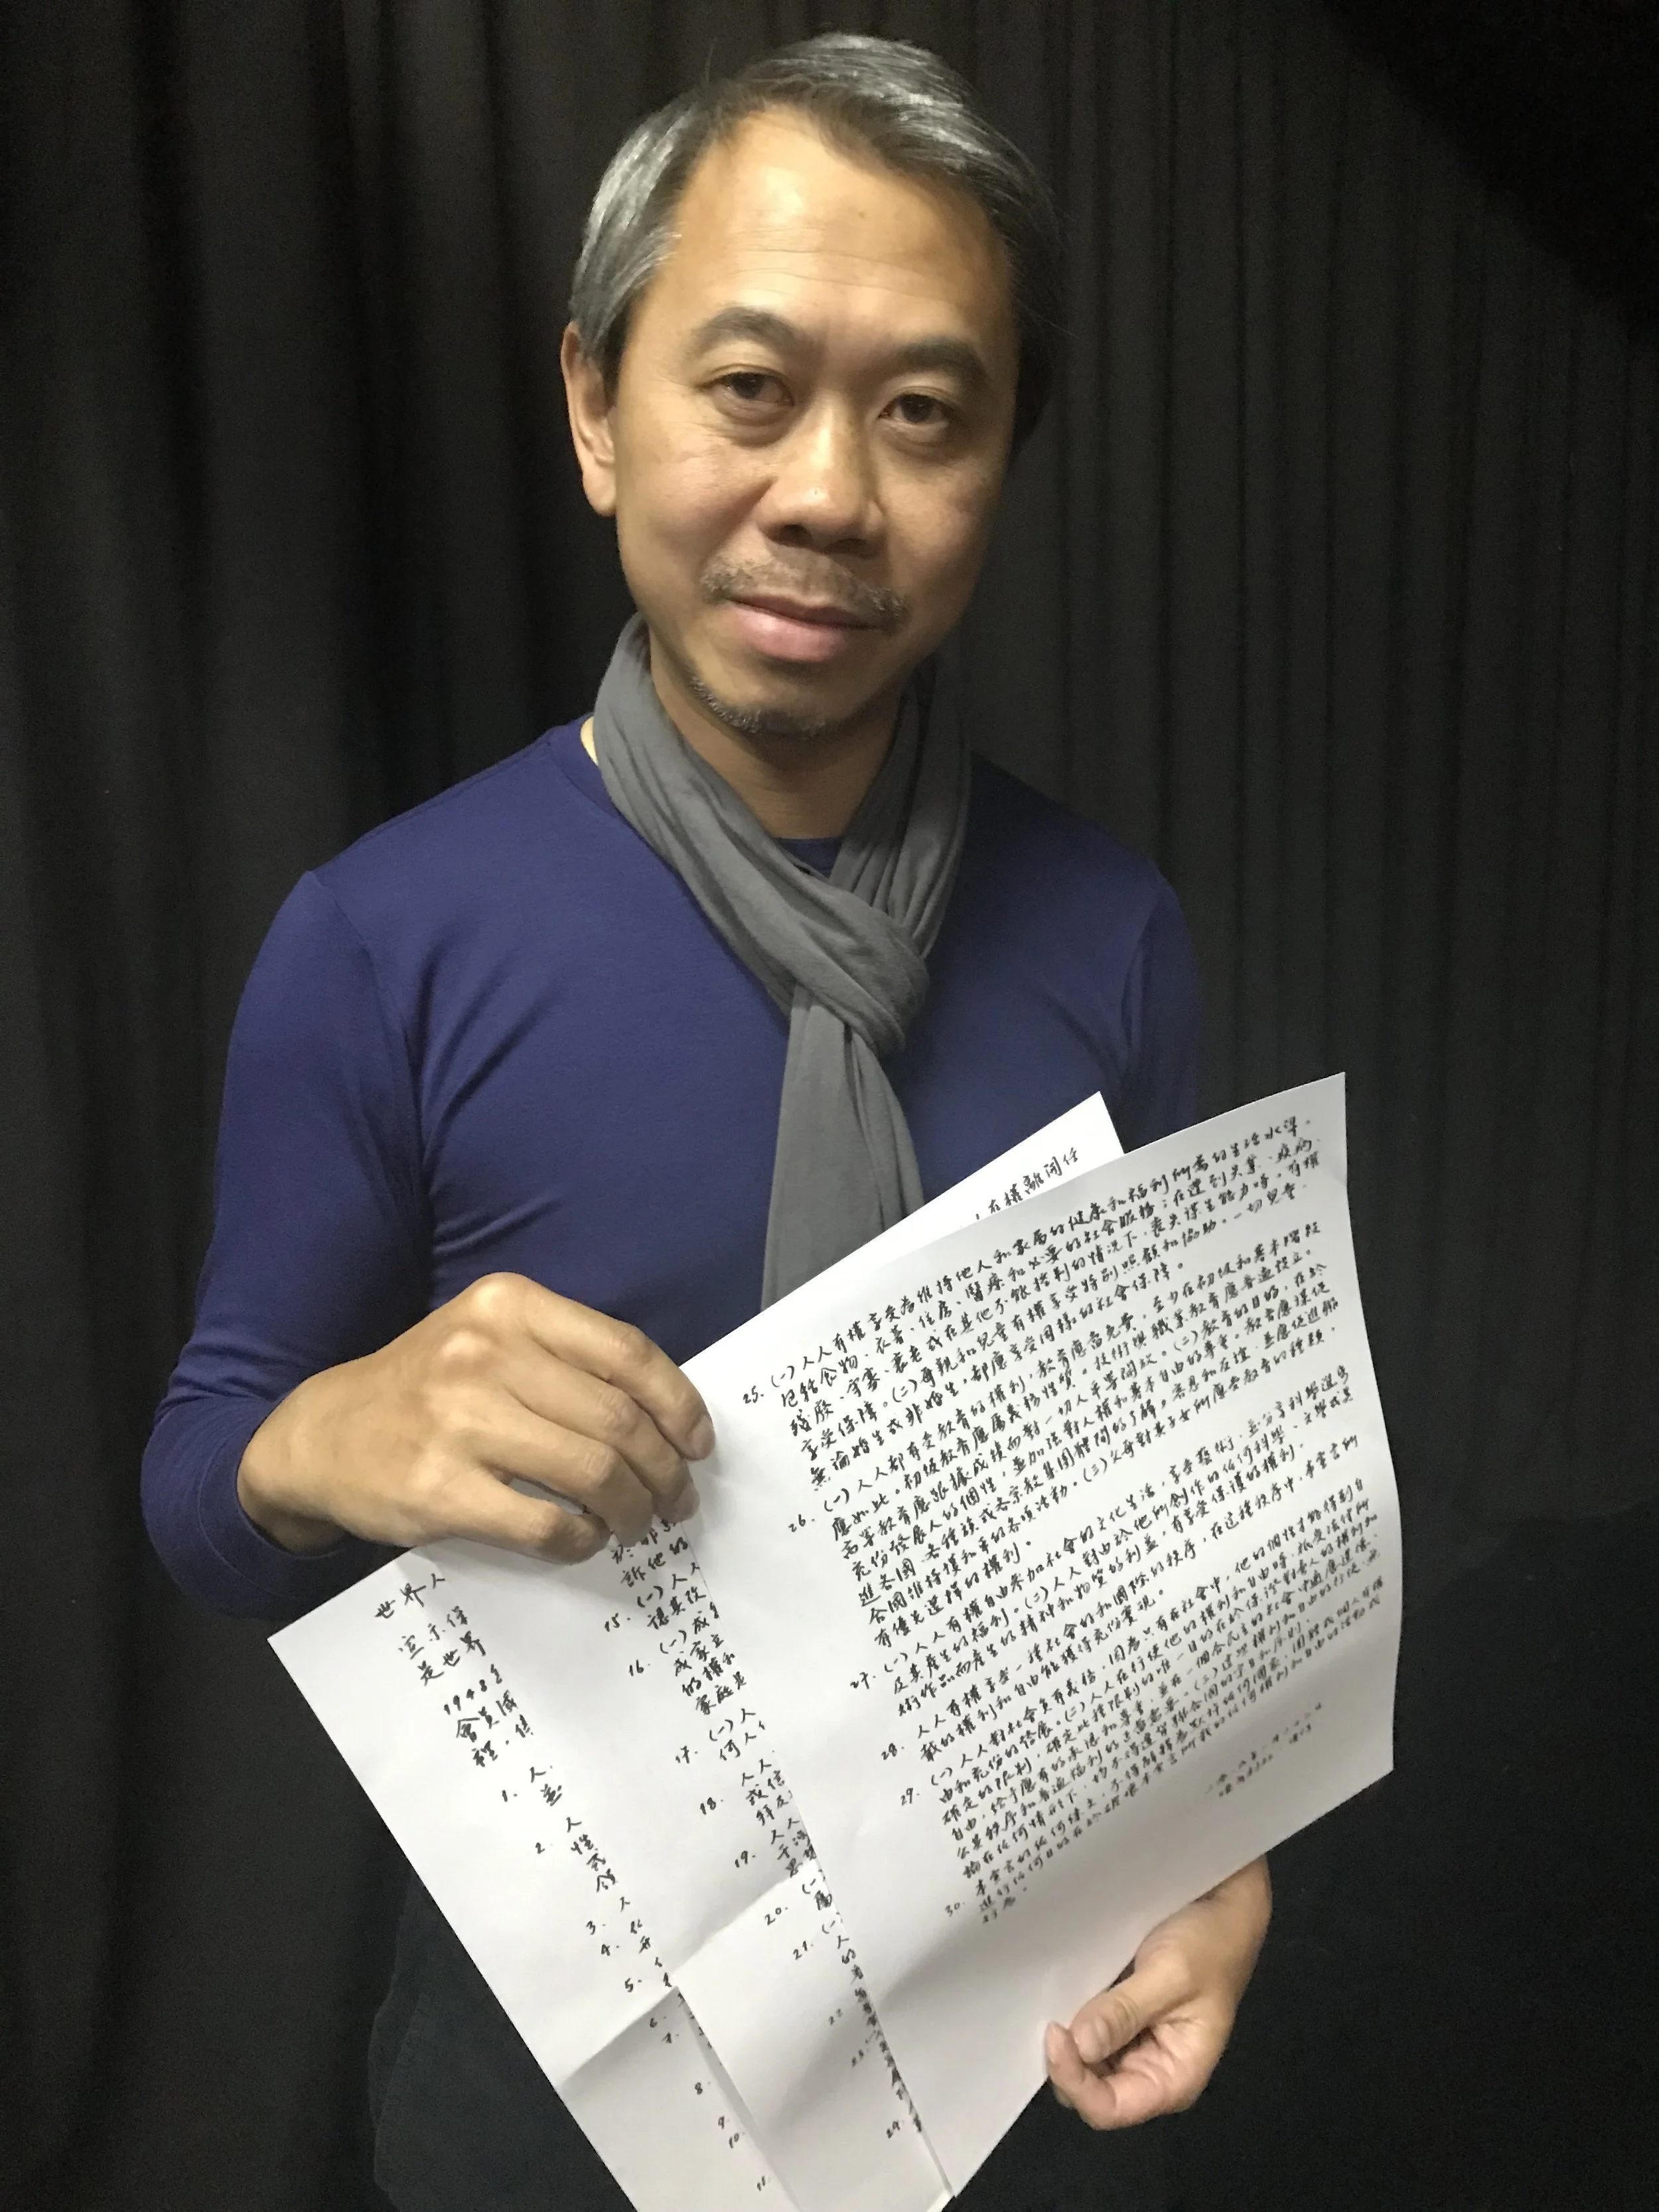 世界人
宣示保
是世界
1948年
會員國
程,使
1. 人
並
2. 人
性
式
領
3. 人
4.
5.
6.
7.
8.
9.
10.
11.
訴他的
15. (一)人人
認其改
16. (一)成年
成家立
的權和
家庭是
17. (一)人
何人
18. 人人
或信
拜及
19. 人人
干涉
20. (一)
屬
21. (一)
人
的
22
23.
24.
人有權離開任
25. (一)人人有權享受為維持他人和家屬的健康和福利所需的生活水準,
包括食物、衣著、住房、醫療和必要的社會服務;在遭到失業、疾病、
殘廢、守寡、衰老或在其他不能控制的情況下,喪失謀生能力時,有權
享受保障。(二)母親和兒童有權享受特別照顧和協助。一切兒童,
無論婚生或非婚生,都應享受同樣的社會保障。
26. (一)人人都有受教育的權利,教育應當免費,至少在初級和基本階段
應如此。初級教育應屬義務性質。技術與職業教育應普遍設立。
高等教育應跟據成績而對一切人平等開放。(二)教育的目的,在於
充份發展人的個性,並加強對人權和基本自由的尊重。教育應謀促
進各國、各種族或各宗教集團體間的了解,容忍和友誼,並應促進聯
合國維持護和平的各項活動。(三)父母對其子女所應受教育的種類,
有優先選擇的權利。
27. (一)人人有權自由參加社會的文化生活,享受藝術,並分享科學進步
及其產生的福利。(二)人人對由於他所創作的任何科學、文學或美
術作品而產生的精神和物質的利益,有享受保護的權利。
28. 人人有權享受一種社會的和國際的秩序,在這種秩序中,本宣言所
載的權利和自由能獲得充份實現。
29. (一)人人對社會負有義務,因為只有在社會中,他的個性才能得到自
由和充份的發展。(二)人人在行使他的權利和自由時,祗受法律所
確定的限制,確定此種限制的唯一目的在於保證對旁人的權利和
自由,給予應有的承認和尊重,並在一個合民主的社會中適應道德、
公共秩序和普遍福利的正當需要。(三)這些權利和自由的行使,無
論在任何情形下,均不得違背聯合國的宗旨和原則。
30. 本宣言的任何條文,不得解釋為默許任何國家、團體或個人有權
進行任何旨在於破壞本宣言所載的任何權利和自由的活動或
行為。